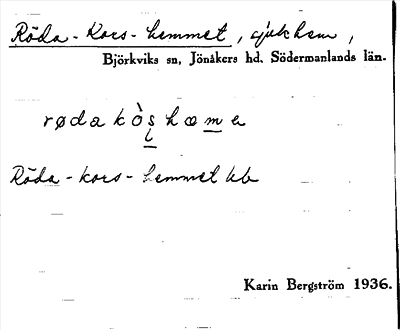 Röda-Kors-hemmet, sjukhem,
Björkviks sn, Jönåkers hd, Södermanlands län.
rødakòshæme
Röda-kors-hemmet kb
Karin Bergström 1936.